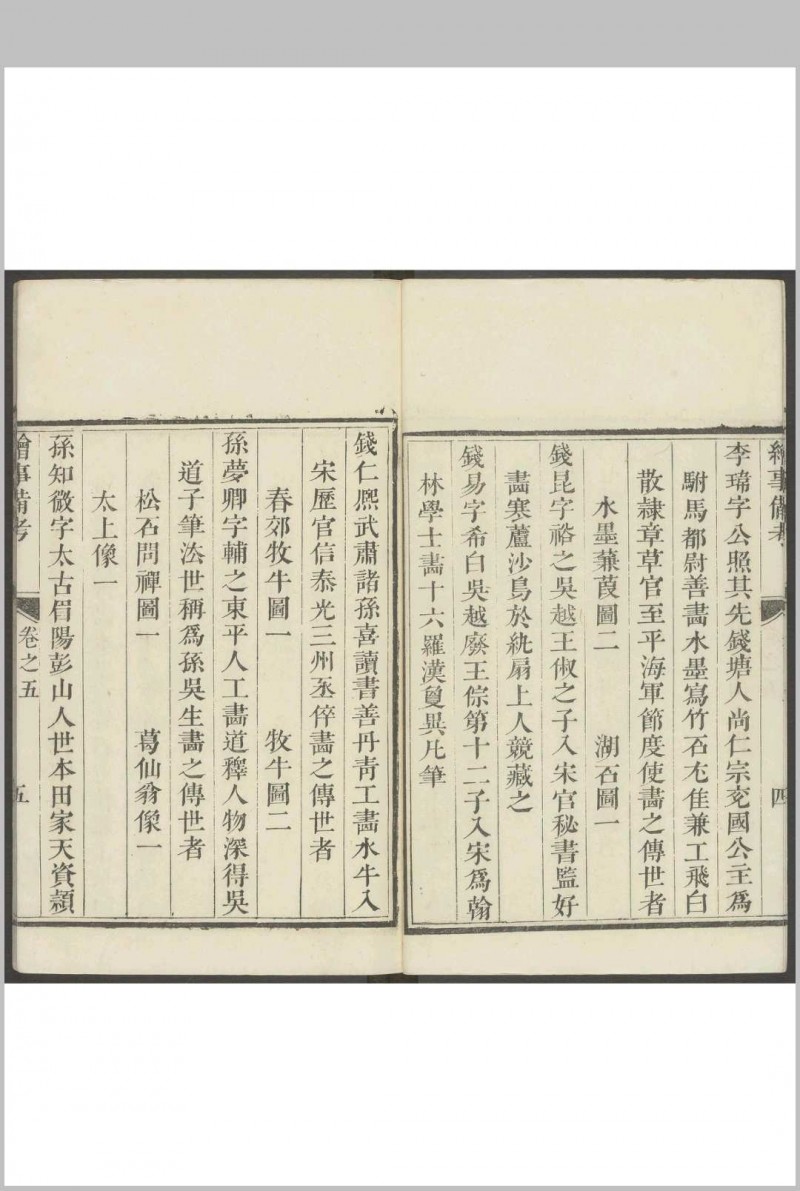 繪事備考
四
李瑋字公照其先錢塘人尚仁宗兗國公主為
駙馬都尉善畫水墨寫竹石尤佳兼工飛白
散隸章草官至平海軍節度使畫之傳世者
水墨蒹葭圖二 湖石圖一
錢昆字裕之吳越王俶之子入宋官秘書監好
畫寒蘆沙鳥於紈扇上人競藏之
錢易字希白吳越廢王倧第十二子入宋為翰
林學士畫十六羅漢夐異凡筆
錢仁熙武肅諸孫喜讀書善丹靑工畫水牛入
宋歷官信泰光三州丞倅畫之傳世者
春郊牧牛圖一 牧牛圖二
孫夢卿字輔之東平人工畫道釋人物深得吳
道子筆法世稱為孫吳生畫之傳世者
松石問禪圖一 葛仙翁像一
太上像一
孫知微字太古眉陽彭山人世本田家天資穎
繪事備考
卷之五
五